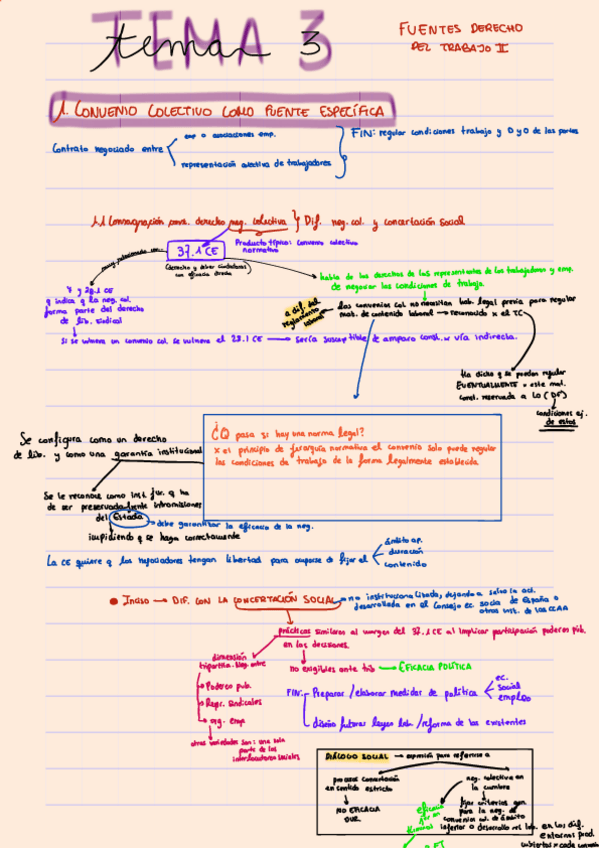 TEMA 3
tema 3
FUENTES DERECHO
DEL TRABAJO II
1. CONVENIO COLECTIVO COMO FUENTE ESPECÍFICA
Contrato negociado entre
emp o asociaciones emp.
representación colectiva de trabajadores
FIN: regular condiciones trabajo y D y O de las partes
1.1 Consagración const. derecho neg. colectiva } Dif. neg. col. y concertación social
Producto típico: convenio colectivo
normativo
muy relacionado con:
37.1 CE
(derecho y deber ciudadanos
con eficacia directa
habla de los derechos de los representantes de los trabajadores y emp.
de negociar las condiciones de trabajo.
7 y 28.1 CE
q indica q la neg. col.
forma parte del derecho
de lib. sindical
a dif. del
reglamento
laboral
los convenios col no necesitan hab. legal previa para regular
mat. de contenido laboral → reconocido x el TC
si se vulnera un convenio col. se vulnera el 28.1 CE → sería susceptible de amparo const. x vía indirecta.
Ha dicho q se puedan regular
EVENTUALMENTE x este mat.
const. reservada a LO (DF)
condiciones ej.
de estos
¿Q pasa si hay una norma legal?
x el principio de jerarquía normativa el convenio solo puede regular
las condiciones de trabajo de la forma legalmente establecida
Se configura como un derecho
de lib. y como una garantía institucional
Se le reconoce como inst. jur. q ha
de ser preservada frente intromisiones
del Estado
debe garantizar la eficacia de la neg.
impidiendo q se haga correctamente
La CE quiere q los negociadores tengan libertad para ocuparse de fijar el
ámbito ap.
duración
contenido
• Inciso → DIF. CON LA CONCERTACIÓN SOCIAL
no institucionalizada, dejando a salvo la act.
desarrollada en el Consejo ec. social de España o
otras inst. de las CCAA
prácticas similares al margen del 37.1 CE al implicar participación poderes púb.
en las decisiones.
dimensión
tripartita. Neg. entre
no exigibles ante trib → EFICACIA POLÍTICA
Poderes pub.
Repr. sindicales
org. emp
FIN:
Preparar / elaborar medidas de política
ec.
social
empleo
diseño futuras leyes lab. / reforma de las existentes
otras variedades son: una sola
parte de los
interlocutores sociales
DIÁLOGO SOCIAL → expresión para referirse a
proceso concertación
en sentido estricto
neg. colectiva en
la cumbre
NO EFICACIA
JUR
eficacia
jur. en
general
fijar criterios gen
para la neg. de
convenios col. de ámbito
inferior o desarrollo rel. lab. en los dif.
entornos prod.
cubiertos x cada convenio